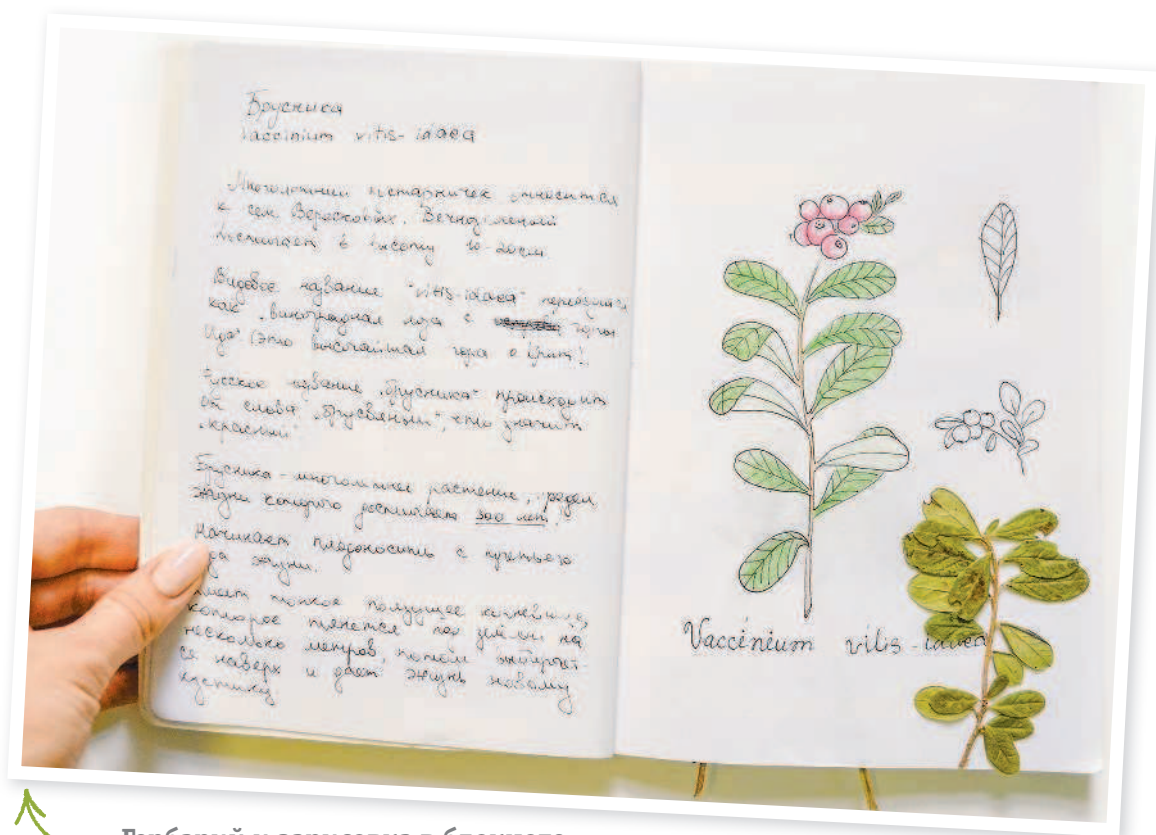 Брусника
Vaccinium vitis-idaea
Многолетний кустарничек относится
к сем. Вересковых. Вечнозеленый
достигает в высоту 10-20см
Видовое название "vitis-idaea" переводится
как "виноградная лоза с горы
Ида" (это высочайшая гора о. Крит!)
Русское название "брусника" происходит
от слова "брусвяный", что значит
"красный"
Брусника - многолетнее растение, предел
жизни которого достигает 300 лет!
Начинает плодоносить с третьего
года жизни.
Имеет тонкое ползущее корневище,
которое тянется под землей на
несколько метров, потом выбирает-
ся наверх и дает жизнь новому
кустику
Vaccinium vitis-idaea